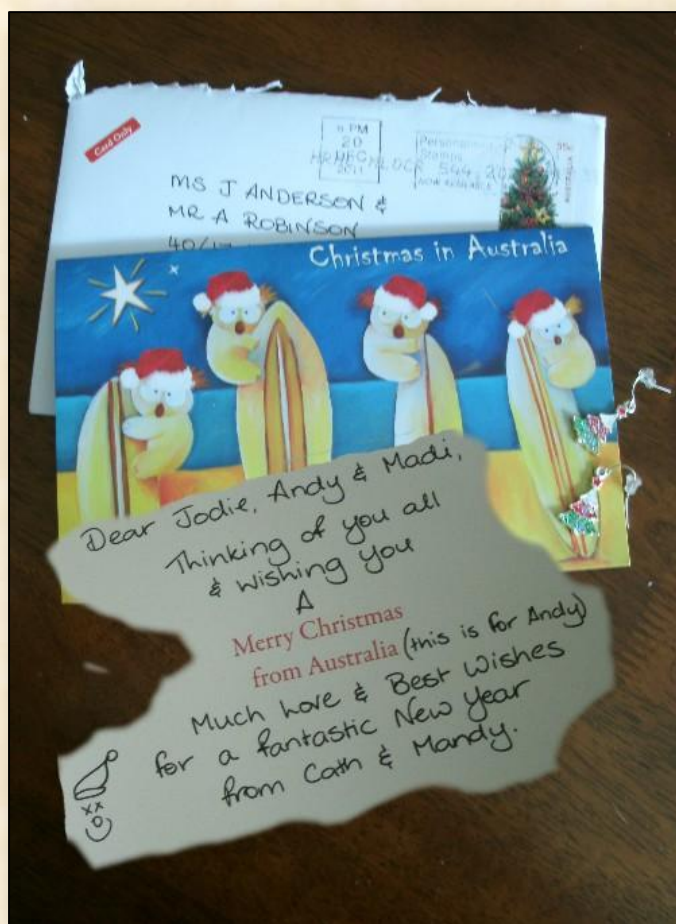 Card Only
6 PM
20
2011
Personalised
Stamps
NOW AVAILABLE
55c
AUSTRALIA
MS J ANDERSON &
MR A ROBINSON
40/
Christmas in Australia
Dear Jodie, Andy & Madi,
Thinking of you all
& wishing you
A
Merry Christmas
from Australia (this is for Andy)
Much Love & Best Wishes
for a fantastic New Year
from Cath & Mandy.